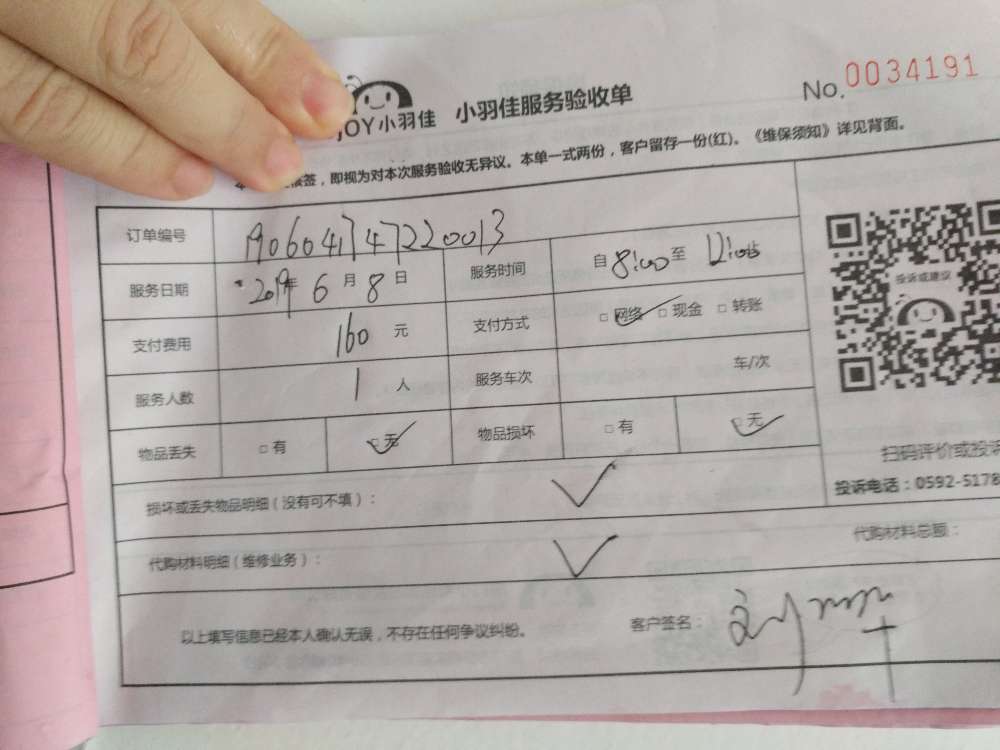 JOY小羽佳 小羽佳服务验收单 No.0034191
签,即视为对本次服务验收无异议。本单一式两份,客户留存一份(红)。《维保须知》详见背面。
订单编号 1906041747220013
服务日期 2019年 6 月 8 日 服务时间 自 8:00 至 12:00
支付费用 160 元 支付方式 □ 网络 □ 现金 □ 转账
服务人数 1 人 服务车次 车/次
物品丢失 □ 有 □ 无 物品损坏 □ 有 □ 无
投诉或建议
扫码评价或投诉
投诉电话:0592-5178
损坏或丢失物品明细(没有可不填):
代购材料明细(维修业务): 代购材料总额:
以上填写信息已经本人确认无误,不存在任何争议纠纷。 客户签名: